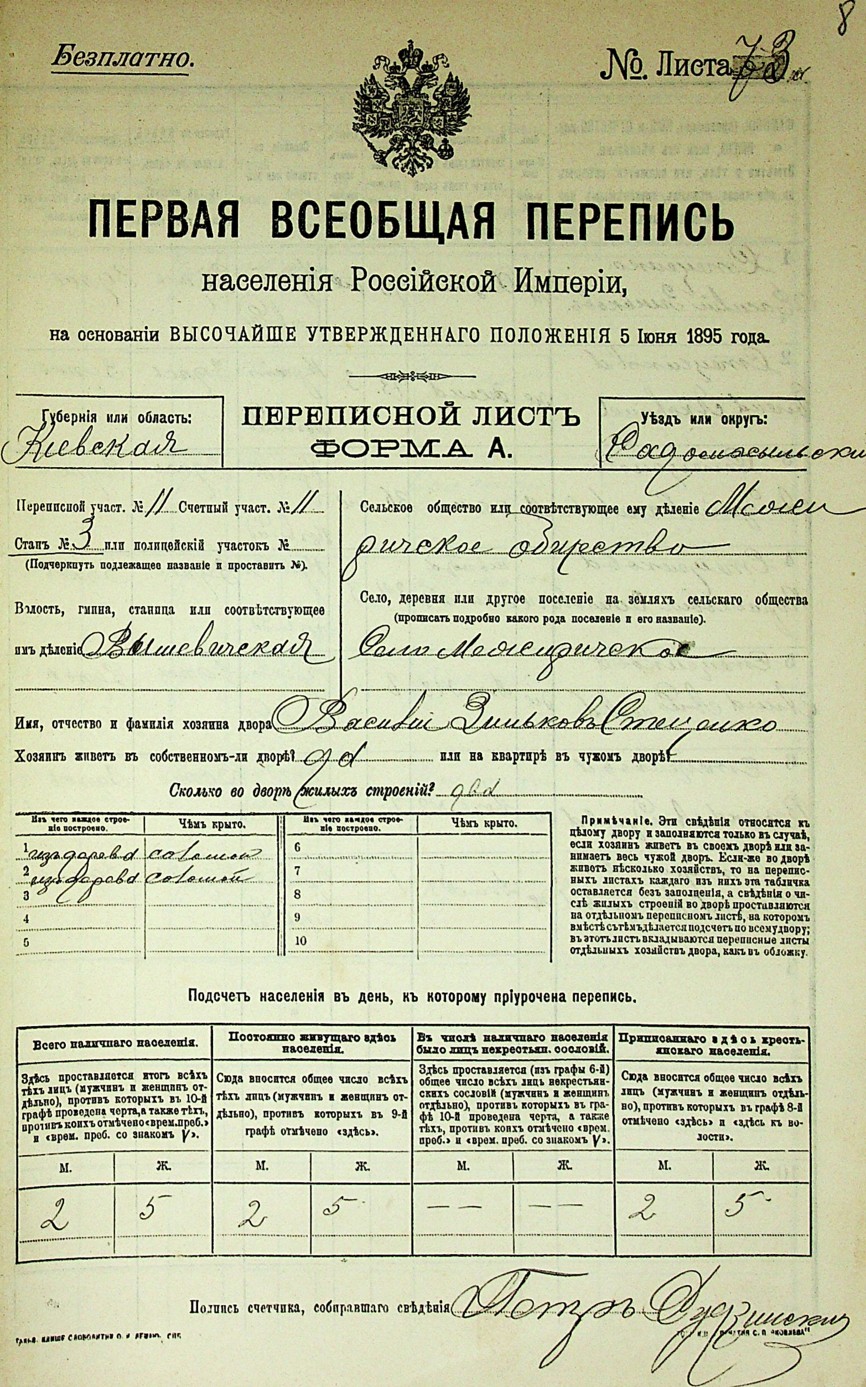 8
Безплатно.
№. Листа 73
ПЕРВАЯ ВСЕОБЩАЯ ПЕРЕПИСЬ
населенія Россійской Имперіи,
на основаніи ВЫСОЧАЙШЕ УТВЕРЖДЕННАГО ПОЛОЖЕНІЯ 5 Іюня 1895 года.
Губернія или область:
Кіевская
ПЕРЕПИСНОЙ ЛИСТЪ
ФОРМА А.
Уѣздъ или округъ:
Переписной участ. № 11 Счетный участ. № 11
Станъ № 3 или полицейскій участокъ №
(Подчеркнуть подлежащее названіе и проставить №).
Волость, гмина, станица или соотвѣтствующее
имъ дѣленіе Вышевичская
Сельское общество или соотвѣтствующее ему дѣленіе Межи
ричское общество
Село, деревня или другое поселеніе на земляхъ сельскаго общества
(прописать подробно какого рода поселеніе и его названіе).
Село Межиричское
Имя, отчество и фамилія хозяина двора Василій Зиньковъ Стеценко
Хозяинъ живетъ въ собственномъ-ли дворѣ? да или на квартирѣ въ чужомъ дворѣ?
Сколько во дворѣ жилыхъ строеній? два
Изъ чего каждое строеніе построено. Чѣмъ крыто. Изъ чего каждое строеніе построено. Чѣмъ крыто.
1 изъ дерева соломой 6
2 изъ дерева соломой 7
3 8
4 9
5 10
Примѣчаніе. Эти свѣдѣнія относятся къ
цѣлому двору и заполняются только въ случаѣ,
если хозяинъ живетъ въ своемъ дворѣ или за-
нимаетъ весь чужой дворъ. Если-же во дворѣ
живетъ нѣсколько хозяйствъ, то на перепис-
ныхъ листахъ каждаго изъ нихъ эта табличка
оставляется безъ заполненія, а свѣдѣнія о чи-
слѣ жилыхъ строеній во дворѣ проставляются
на отдѣльномъ переписномъ листѣ, на которомъ
вмѣстѣ съ тѣмъ дѣлается подсчетъ по всему двору;
въ этотъ листъ вкладываются переписные листы
отдѣльныхъ хозяйствъ двора, какъ въ обложку.
Подсчетъ населенія въ день, къ которому пріурочена перепись.
Всего наличнаго населенія.
Здѣсь проставляется итогъ всѣхъ
тѣхъ лицъ (мужчинъ и женщинъ от-
дѣльно), противъ которыхъ въ 10-й
графѣ проведена черта, а также тѣхъ,
противъ коихъ отмѣчено «врем. преб.»
и «врем. преб. со знакомъ V».
Постоянно живущаго здѣсь
населенія.
Сюда вносится общее число всѣхъ
тѣхъ лицъ (мужчинъ и женщинъ от-
дѣльно), противъ которыхъ въ 9-й
графѣ отмѣчено «здѣсь».
Въ числѣ наличнаго населенія
было лицъ некрестьян. сословій.
Здѣсь проставляется (изъ графы 6-й)
общее число всѣхъ лицъ некрестьян-
скихъ сословій (мужчинъ и женщинъ
отдѣльно), противъ которыхъ въ гра-
фѣ 10-й проведена черта, а также
тѣхъ, противъ коихъ отмѣчено «врем.
преб.» и «врем. преб. со знакомъ V».
Приписаннаго здѣсь кресть-
янскаго населенія.
Сюда вносится общее число всѣхъ
лицъ (мужчинъ и женщинъ отдѣль-
но), противъ которыхъ въ графѣ 8-й
отмѣчено «здѣсь» и «здѣсь къ во-
лости».
М. Ж. М. Ж. М. Ж. М. Ж.
2 5 2 5 — — — — 2 5
Попись счетчика, собиравшаго свѣдѣнія Петръ Дудзинскій